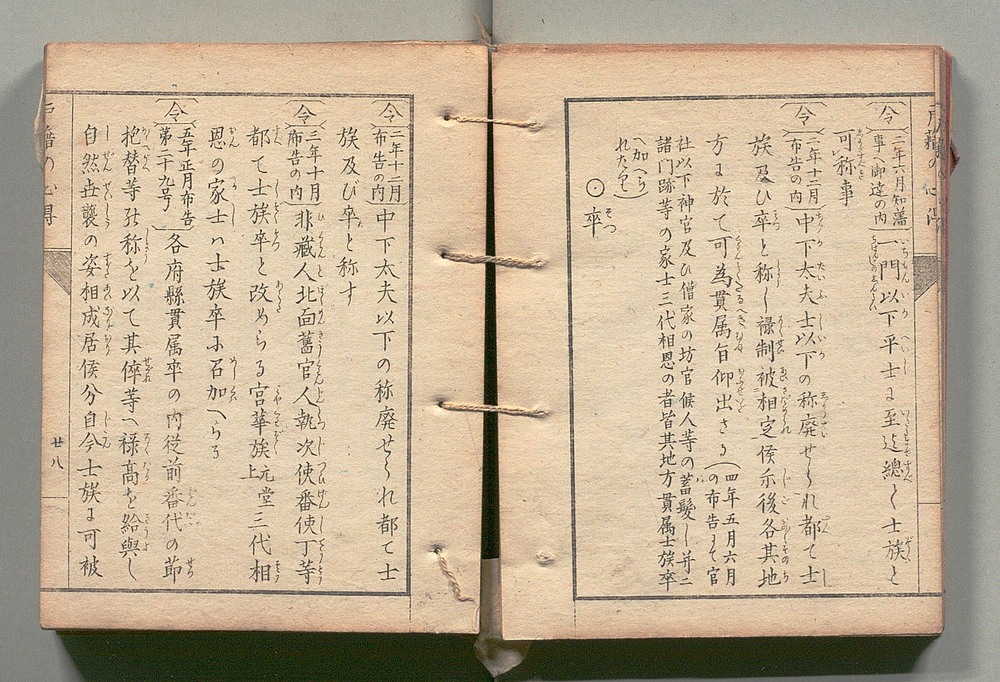 令
二年六月知藩
事へ御達の内
一門以下平士に至迄總て士族と
可称事
令
二年十二月
布告の内
中下太夫士以下の称廃せられ都て士
族及ひ卒と称し禄制被相定候示後各其地
方に於て可為貫属旨仰出さる
四年五月六月
の布告にて官
社以下神官及ひ僧家の坊官候人等の蓄髪し并ニ
諸門跡等の家士三代相恩の者皆其地方貫属士族卒
へ加へら
れたり
⊙卒
令
二年十二月
布告の内
中下太夫以下の称廃せられ都て士
族及び卒と称す
令
三年十月
布告の内
非蔵人北面舊官人執次使番使丁等
都て士族卒と改めらる宮華族堂上元三代相
恩の家士ハ士族卒に召加へらる
令
五年正月布告
第二十九号
各府縣貫属卒の内従前番代の節
抱替等の称を以て其倅等へ禄高を給與し
自然世襲の姿相成居候分自今士族に可被
戸籍の心得
廿八